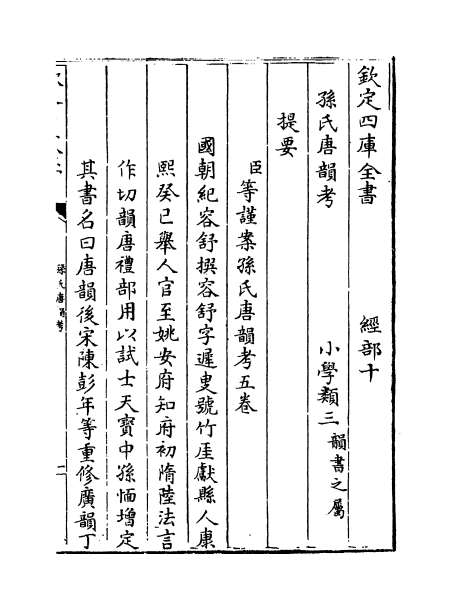 欽定四庫全書 經部十
孫氏唐韻考 小學類三韻書之屬
提要
臣等謹案孫氏唐韻考五卷
國朝紀容舒撰容舒字遲叟號竹厓獻縣人康
熙癸巳舉人官至姚安府知府初隋陸法言
作切韻唐禮部用以試士天寶中孫愐增定
其書名曰唐韻後宋陳彭年等重修廣韻丁
孫氏唐韻考